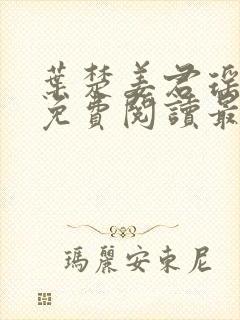 葉楚姜君瑤
免費閱讀最
瑪麗安東尼